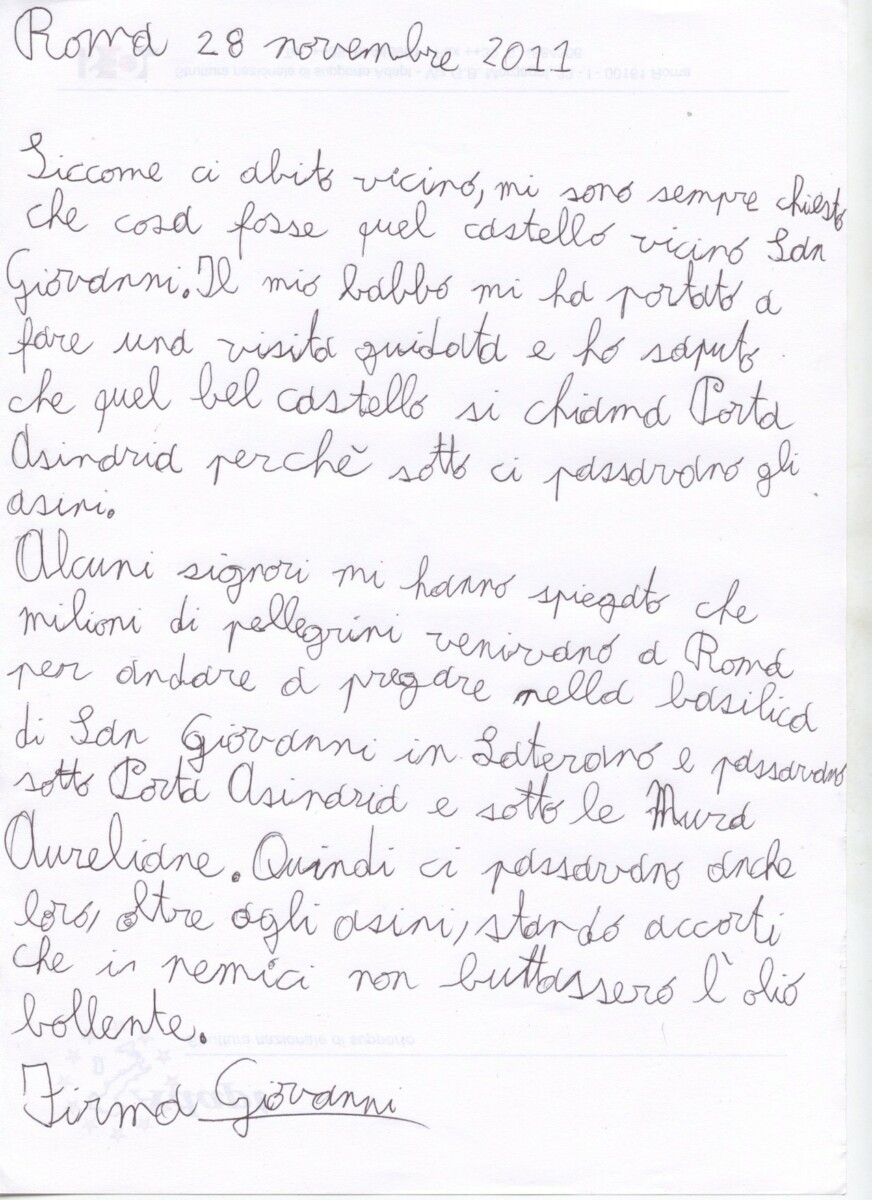 Roma 28 novembre 2011
Siccome ci abito vicino, mi sono sempre chiesto
che cosa fosse quel castello vicino San
Giovanni. Il mio babbo mi ha portato a
fare una visita guidata e ho saputo
che quel bel castello si chiama Porta
Asinaria perchè sotto ci passavano gli
asini.
Alcuni signori mi hanno spiegato che
milioni di pellegrini venivano a Roma
per andare a pregare nella basilica
di San Giovanni in Laterano e passavano
sotto Porta Asinaria e sotto le Mura
Aureliane. Quindi ci passavano anche
loro, oltre agli asini, stando accorti
che i nemici non buttassero l'olio
bollente.
Firma Giovanni